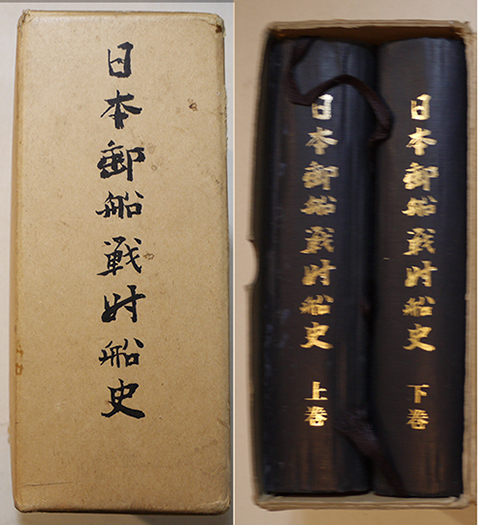 日本郵船戦時船史
日本郵船戦時船史
上巻
日本郵船戦時船史
下巻